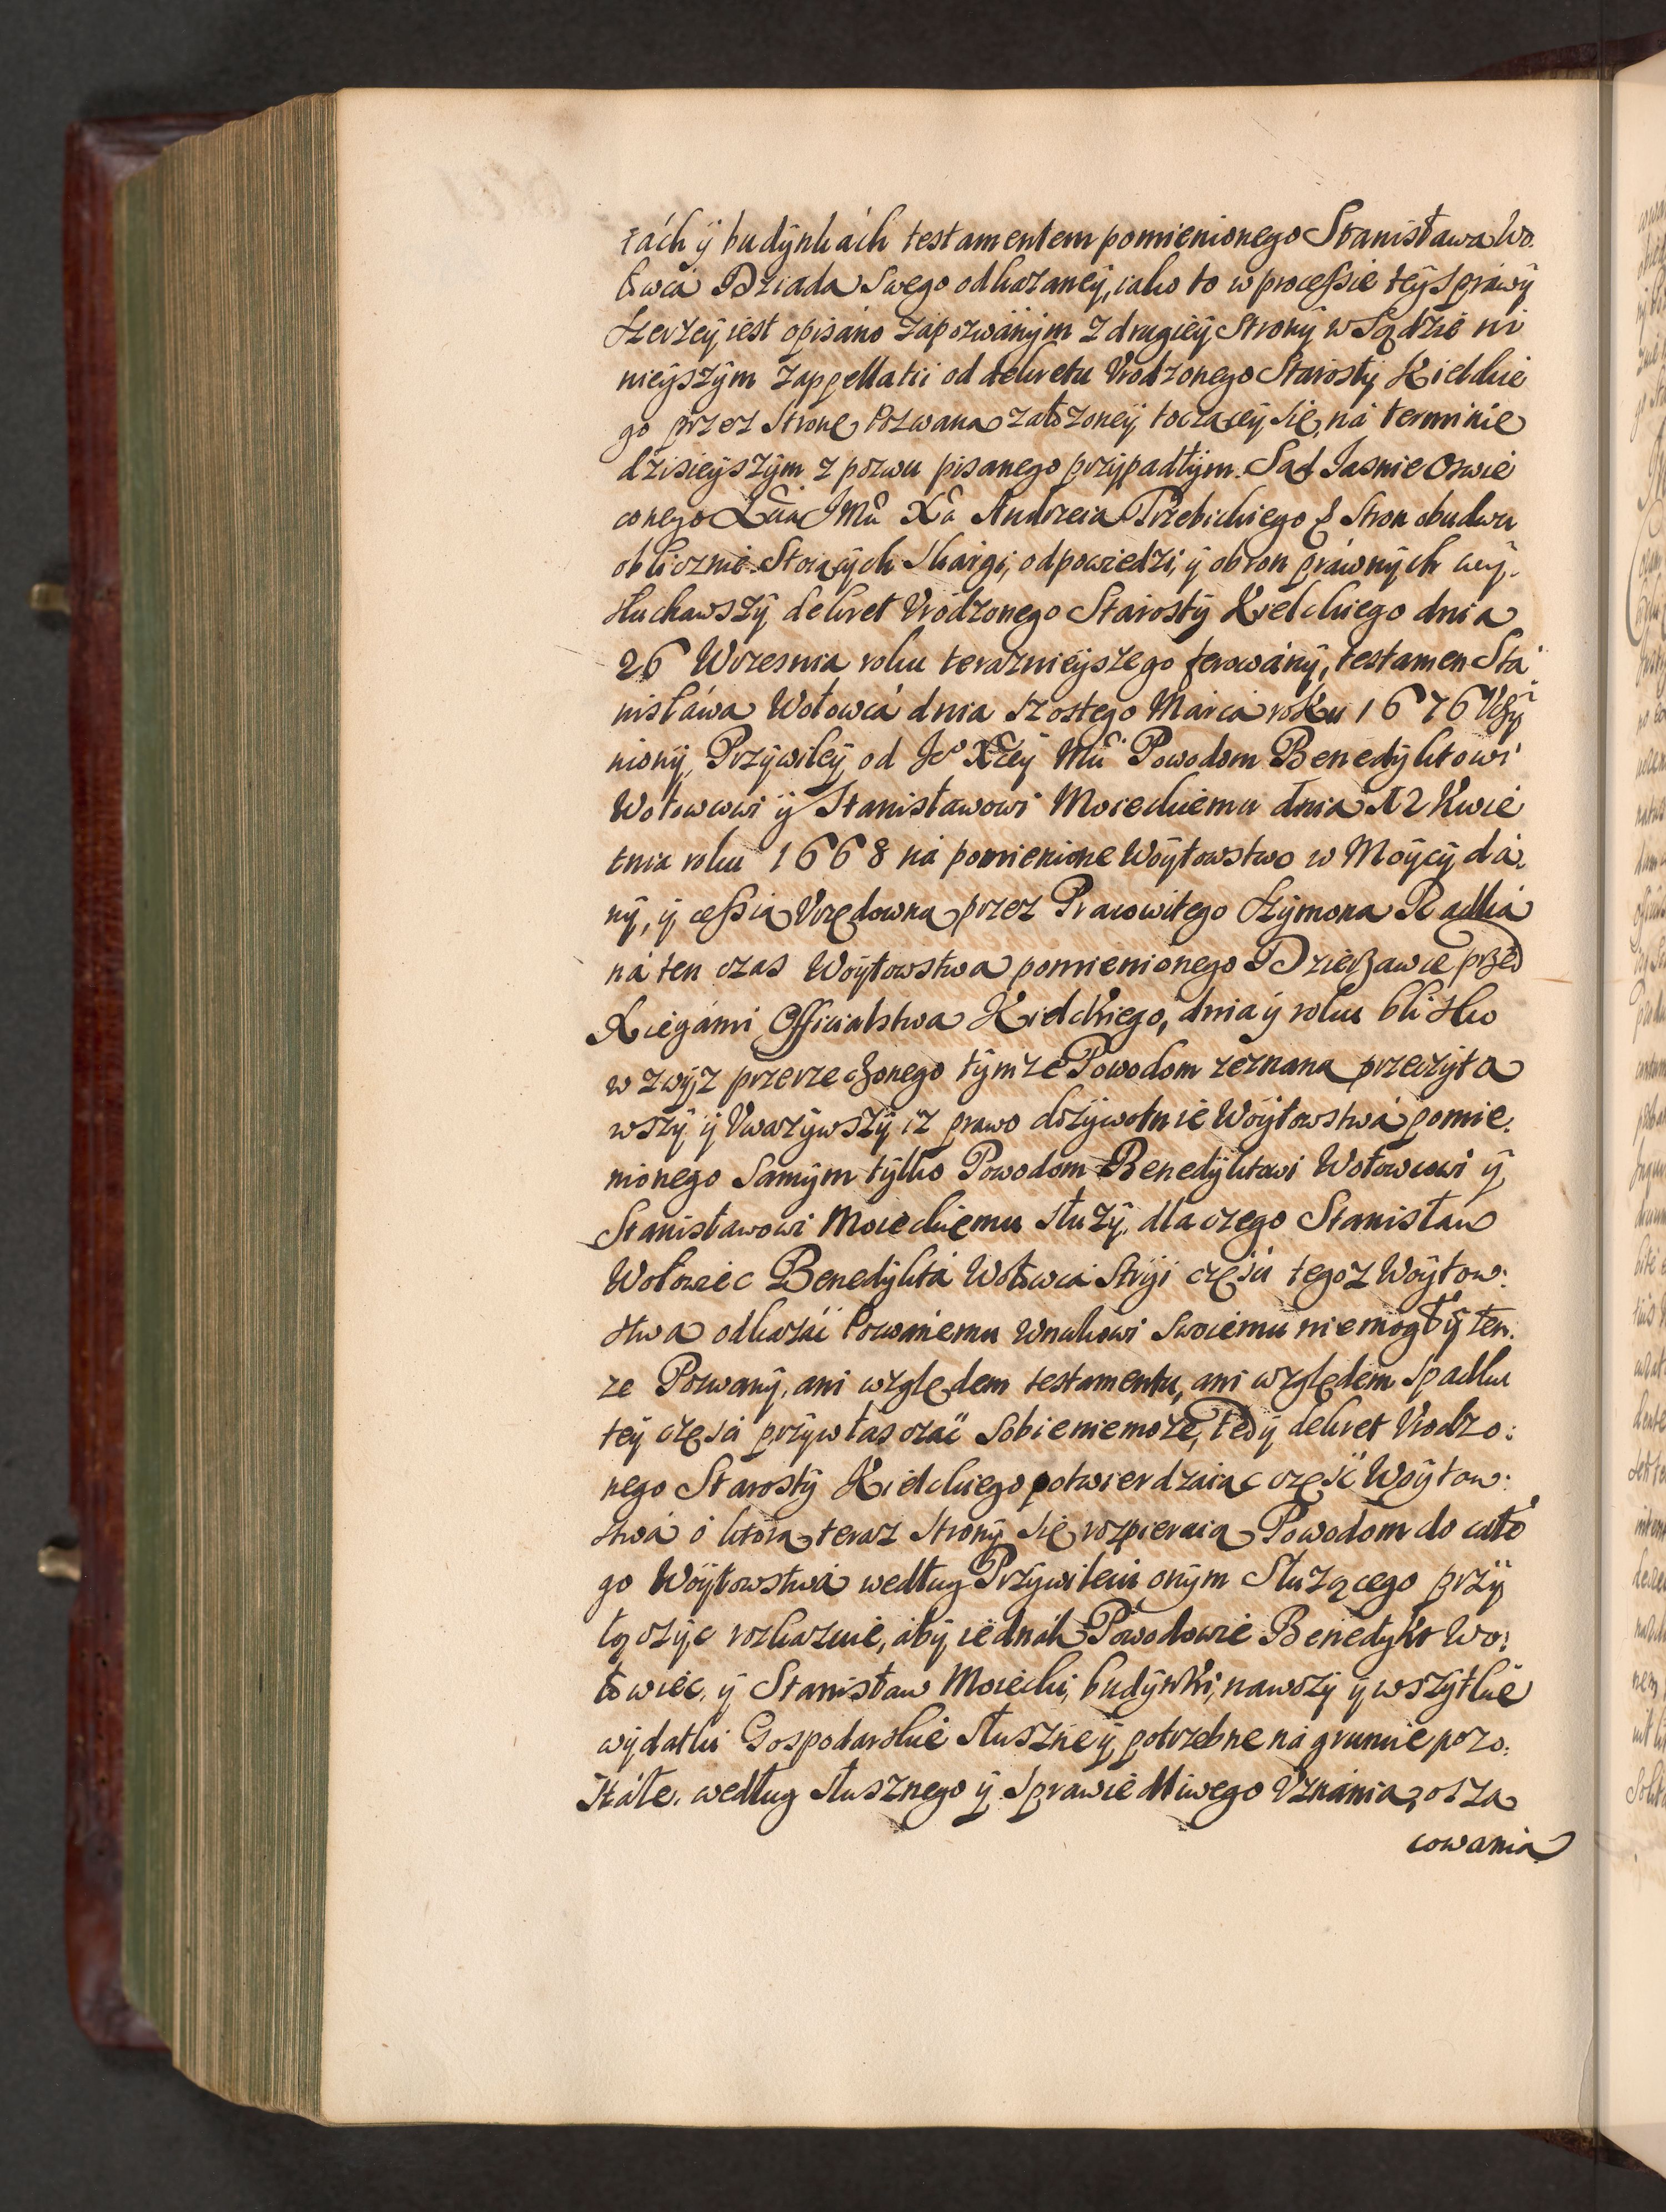 rách ÿ budÿnkách testamentem pomienionego Stanisława Wo.
łowca Dziada Swego odkazaneÿ, iako to w processie teÿ Sprawÿ
szerzeÿ iest opisano zapozwánÿm z drugieÿ Stronÿ w Sądzie ni
nieÿszÿm z appellatii od dekretu Vrodzonego Starostÿ Kielckie
go przez Stronę Pozwaną założoneÿ toczaceÿ się, ná terminie
dzisieÿszÿm z pozwu pisanego przÿpadłÿm. Sąd Iasnie Oswie
conego Xcia JMci Xa Andrzeia Trzebickiego & Stron obudwu
oblicznie Stoiących Skargi, odpowiedzi, ÿ obron práwnÿch wÿ.
słuchawszÿ dekret Vrodzonego Starostÿ Kielckiego dnia
26 Wrzesnia roku terazmieÿszego ferowánÿ, testamen Sta
nisłáwa Wołowcá dnia szostego Marca roku 1676 Vczÿ
nionÿ, Przÿwileÿ od Jeo Xceÿ Mci Powodom Benedÿktowi
Wołowcowi ÿ Stanisławowi Moieckiemu dnia 12 Kwie
tnia roku 1668 ná pomienione Woÿtowstwo w Moÿcÿ dá.
nÿ, ÿ cessią Vrzędowną przez Pracowitego Szÿmona Radka
ná ten czas Woÿtowstwa pomienionego Dzierzawcę przed
Xięgámi Officialstwa Kielckiego, dnia ÿ roku blisko
w zwÿz przerzeczonego tÿmze Powodom zeznaną przeczÿta
wszÿ ÿ Vwazÿwszÿ iz prawo dozÿwotnie Woÿtowstwá pomie.
nionego Samÿm tÿlko Powodom Benedÿktowi Wołowcowi ÿ
Stanisławowi Moieckiemu słuzÿ, dla czego Stanisław
Wołowiec Benedÿktá Wołowca Strÿi części tegoz Woÿtow:
stwa odkazać Pozwánemu Wnukowi Swoiemu niemogł ÿ ten.
ze Pozwanÿ, ani względem testamentu, ani względem Spadku
teÿ części przÿwłasczać Sobie niemoze, tedÿ dekret Vrodzo:
nego Starostÿ Kielckiego potwierdzaiąc część Woÿtow:
stwá o którą teraz Stronÿ się rozpieraią Powodom do całe
go Woÿtowstwá według Przÿwileiu onÿm Słuzącego przÿ
łączÿc rozkazuie, abÿ iednák Powodowie Benedÿkt Wo:
łowiec, ÿ Stanisław Moiecki, budÿnki, nawozÿ ÿ wszÿtkie
wÿdatki Gospodarskie słuszne ÿ potrzebne ná gruncie pozo:
stáłe. według słusznego ÿ Sprawiedliwego Vznánia, osza
cowania